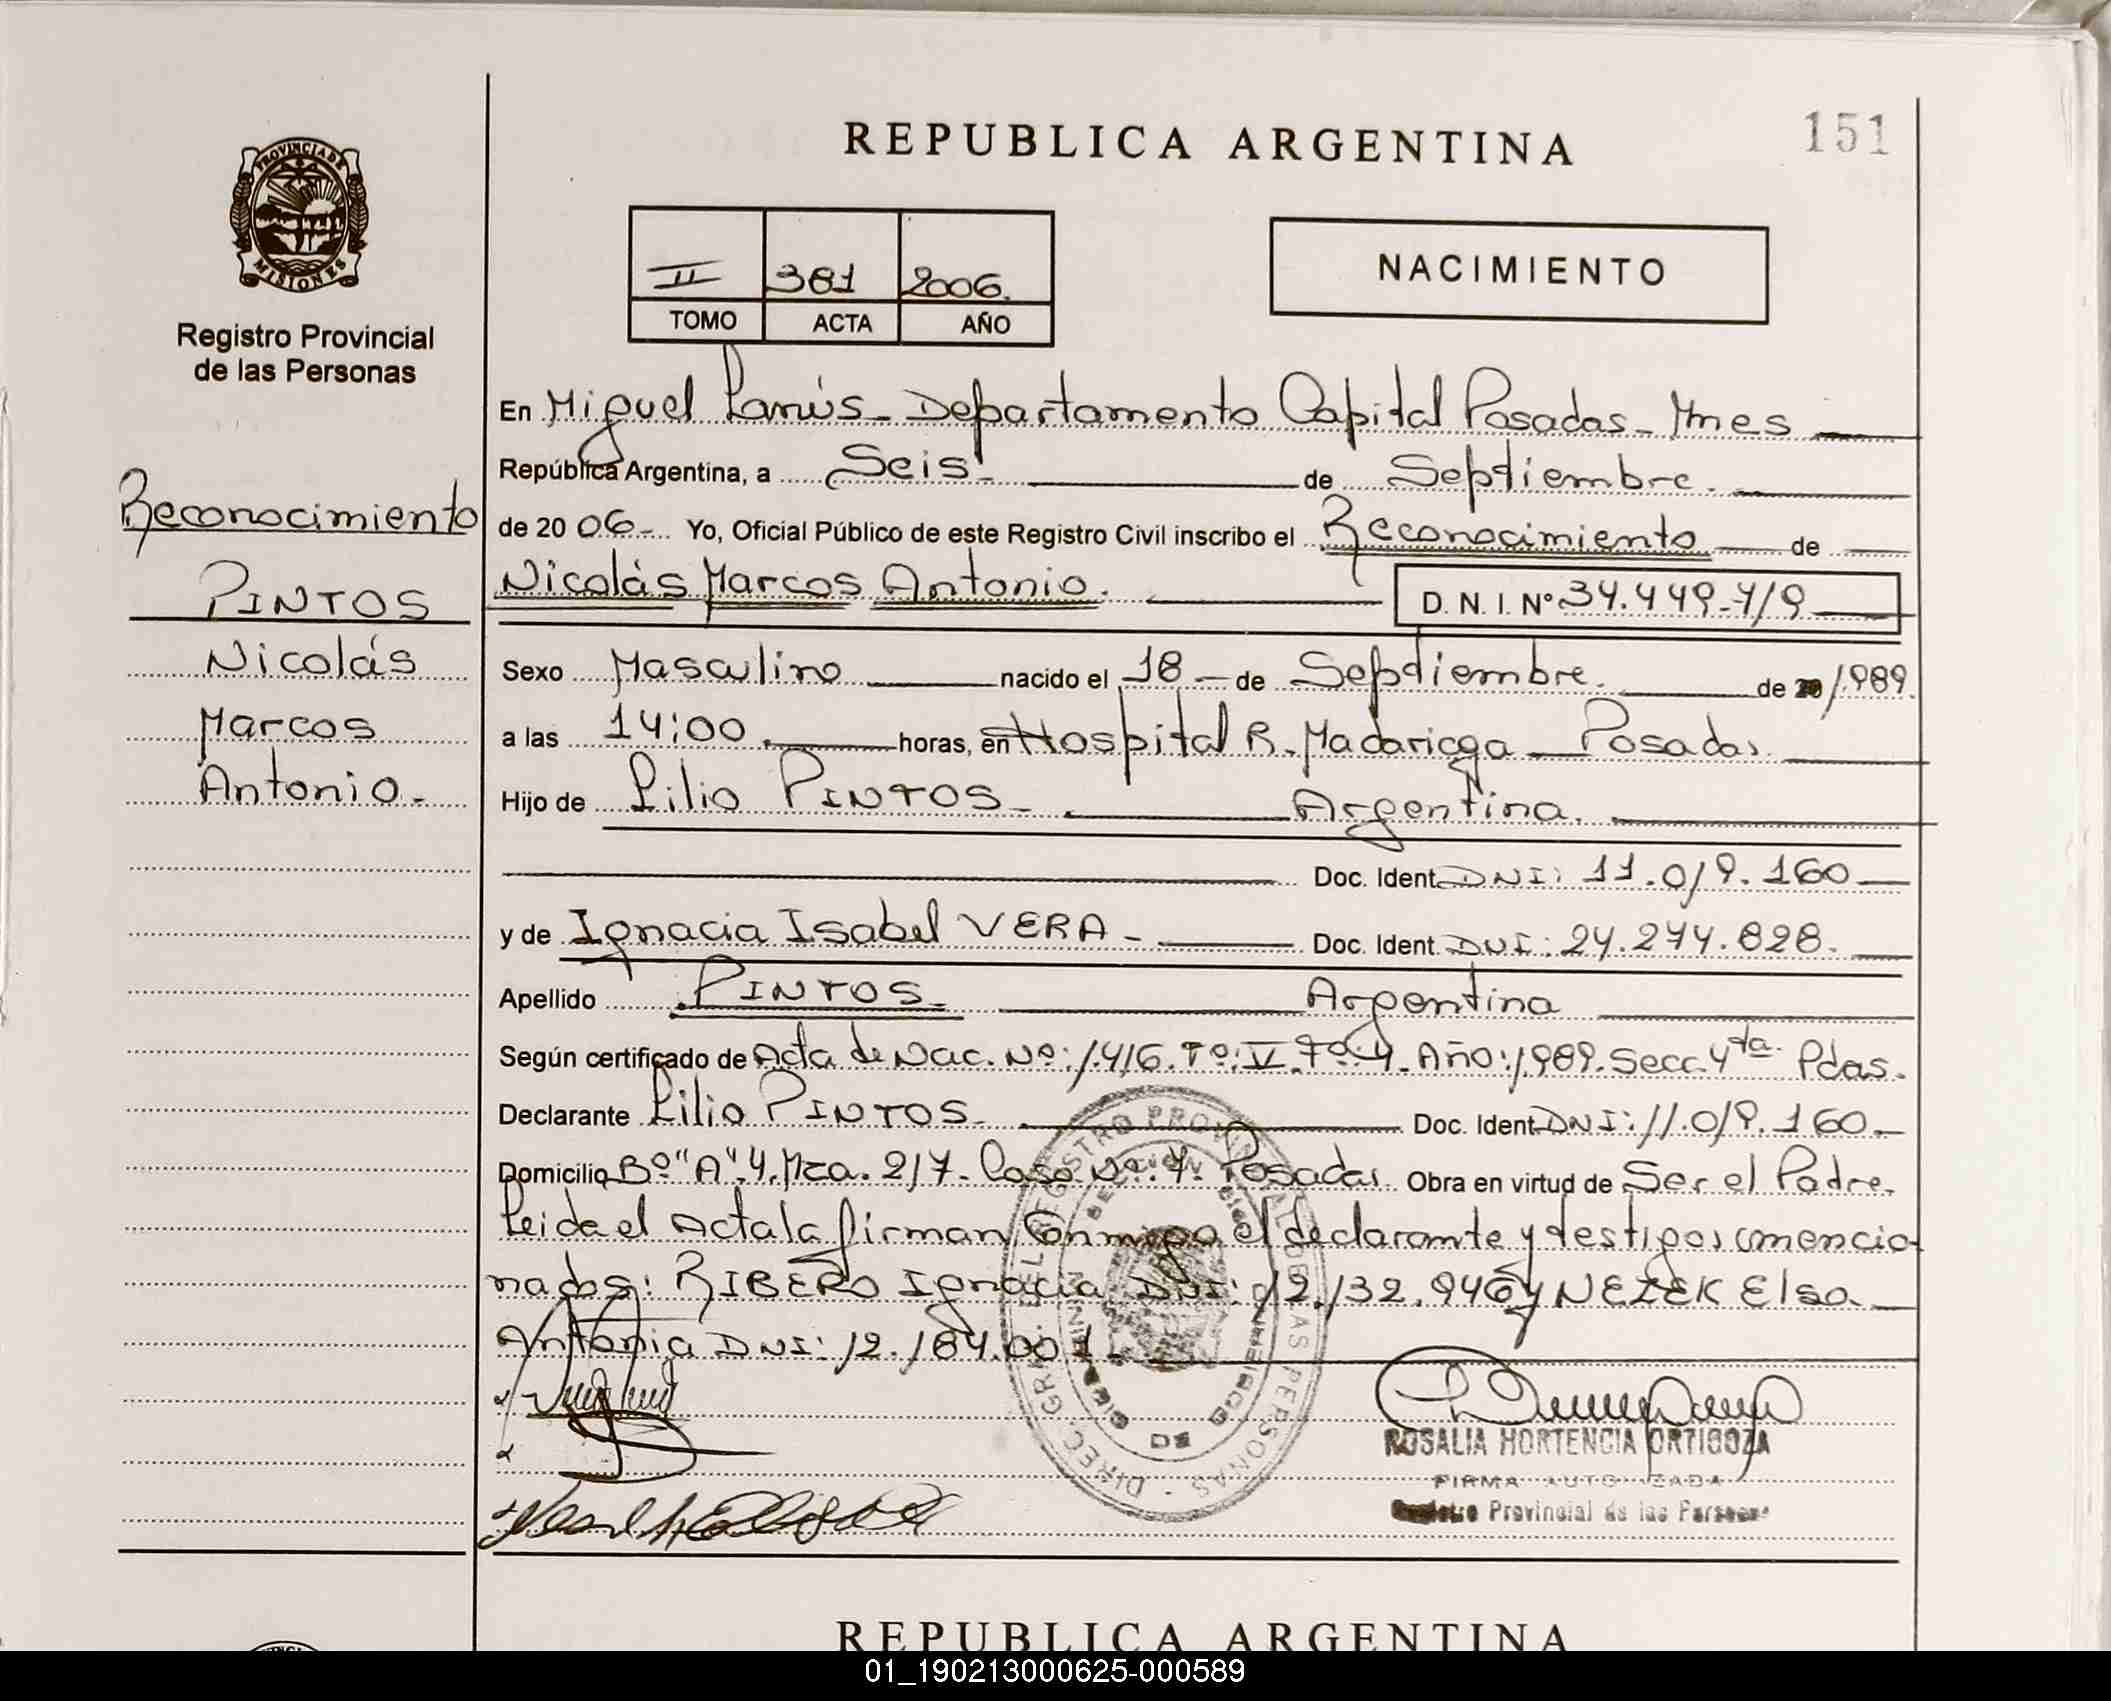 REPUBLICA ARGENTINA
151
PROVINCIA DE
MISIONES
Registro Provincial
de las Personas
II 381 2006.
TOMO ACTA AÑO
NACIMIENTO
En Miguel Lanús - Departamento Capital Posadas - Mnes
República Argentina, a Seis - de Septiembre.
Reconocimiento
de 20 06 - Yo, Oficial Público de este Registro Civil inscribo el Reconocimiento de
PINTOS
Nicolás Marcos Antonio. D. N. I. Nº 34.449.719
Nicolás
Sexo Masculino nacido el 18 - de Septiembre. de 1989.
Marcos
a las 14:00 horas, en Hospital R. Madariaga - Posadas.
Antonio.-
Hijo de Lilio PINTOS - Argentina.
Doc. Ident. DNI: 11.019.160
y de Ignacia Isabel VERA - Doc. Ident. DNI: 24.274.828.
Apellido PINTOS - Argentina
Según certificado de Acta de Nac. Nº: 1.416. Tº: V. Fº: 4. Año: 1989. Secc. 4ta. Pdas.
Declarante Lilio PINTOS - Doc. Ident. DNI: 11.019.160.-
Domicilio Bº "A".4. Mza. 217 - Casa Nº: 7. Posadas. Obra en virtud de Ser el Padre.
Leida el Acta la firman Conmigo el declarante y testigos mencio
nados: RIBERO Ignacia DNI: 12.132.946 y NEZEK Elsa
Antonia DNI: 12.184.001 -
ROSALIA HORTENCIA ORTIGOZA
FIRMA AUTORIZADA
Registro Provincial de las Personas
DIREC. GRAL. DEL REGISTRO PROVINCIAL DE LAS PERSONAS
REPUBLICA ARGENTINA
01_190213000625-000589